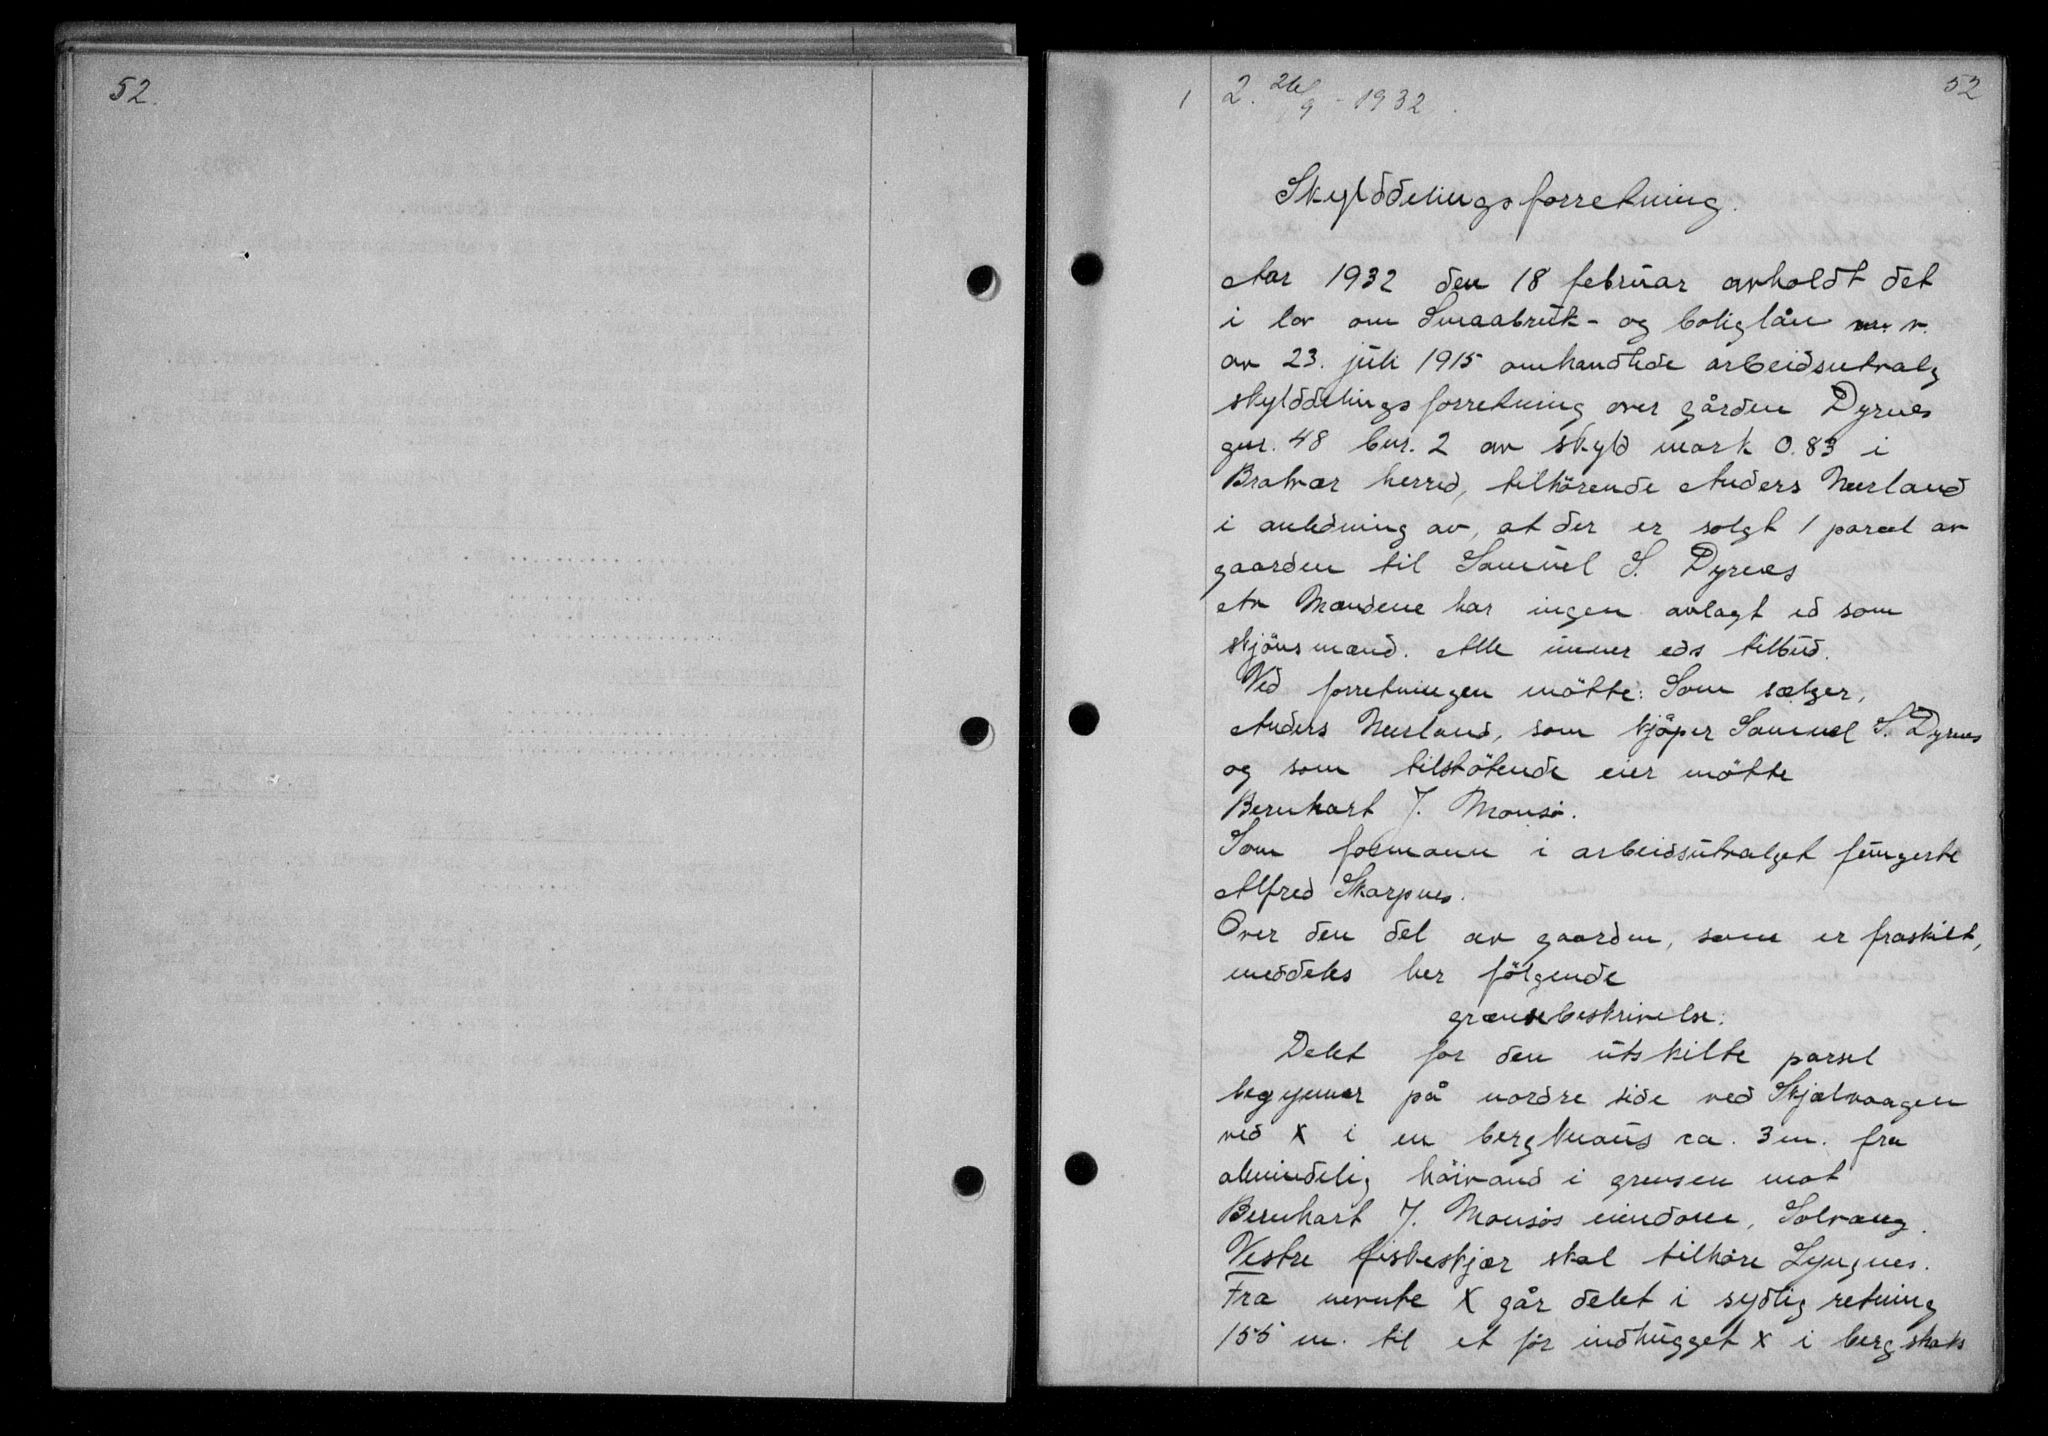 52.
1 2. 26/9 - 1932.
52
Skylddelingsforretning.
Aar 1932 den 18 februar avholdt det
i lov om Smaabruk- og boliglån m.v.
av 23. juli 1915 omhandlede arbeidsutvalg
skylddelingsforretning over gården Dyrnes
gnr. 48 bnr. 2 av skyld mark 0.83 i
Bratvær herred, tilhörende Anders Neerland
i anledning av, at der er solgt 1 parcel av
gaarden til Samuel S. Dyrnes
Av Mændene har ingen avlagt ed som
skjönsmænd. Alle inner eds tilbud.
Ved forretningen mötte: Som sælger,
Anders Neerland, som kjöper Samuel S. Dyrnes
og som tilstötende eier mötte
Bernhart J. Monsö.
Som formann i arbeidsutvalget fungerte
Alfred Skarpnes.
Over den del av gaarden, som er fraskilt,
meddeles her fölgende
grænsebeskrivelse:
Delet for den utskilte parsel
begynner på nordre side ved Skjelvaagen
ved X i en bergknaus ca. 3 m. fra
almindelig höivand i grensen mot
Bernhart J. Monsös eiendom, Solvang.
Vestre fiskeskjær skal tilhöre Lyngnes.
Fra nevnte X går delet i sydlig retning
155 m. til et för indhugget x i berg straks